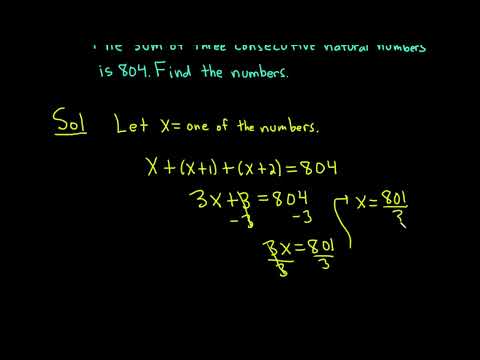 The sum of three consecutive natural numbers
is 804. Find the numbers.
Sol Let x = one of the numbers.
x + (x+1) + (x+2) = 804
3x + 3 = 804
-3 -3
3x = 801
3 3
x = 801
3